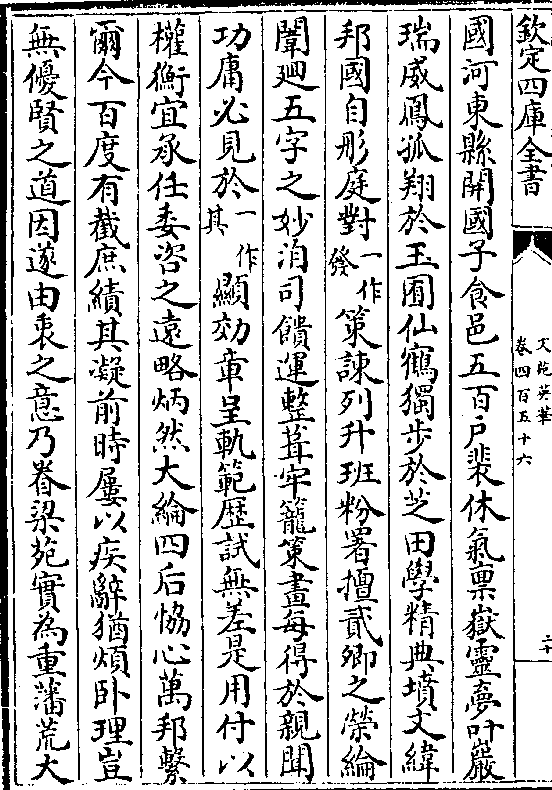 欽定四庫全書
文苑英華
卷四百五十六
二十
國河東縣開國子食邑五百户裴休氣禀嶽靈夢叶巖
瑞威鳳孤翔於玉囿仙鶴獨步於芝田學精典墳文緯
邦國自彤庭對一作發策諫列升班粉署擅貳卿之榮綸
闈廻五字之妙洎司饋運整葺牢籠策畫每得於親聞
功庸必見於一作其顯効章呈軌範歴試無差是用付以
權衡宜承任委咨之遠略炳然大綸四后恊心萬邦繫
爾今百度有截庶績其凝前時屢以疾辭猶煩卧理豈
無優賢之道因遂由衷之意乃眷梁苑實為重藩荒大